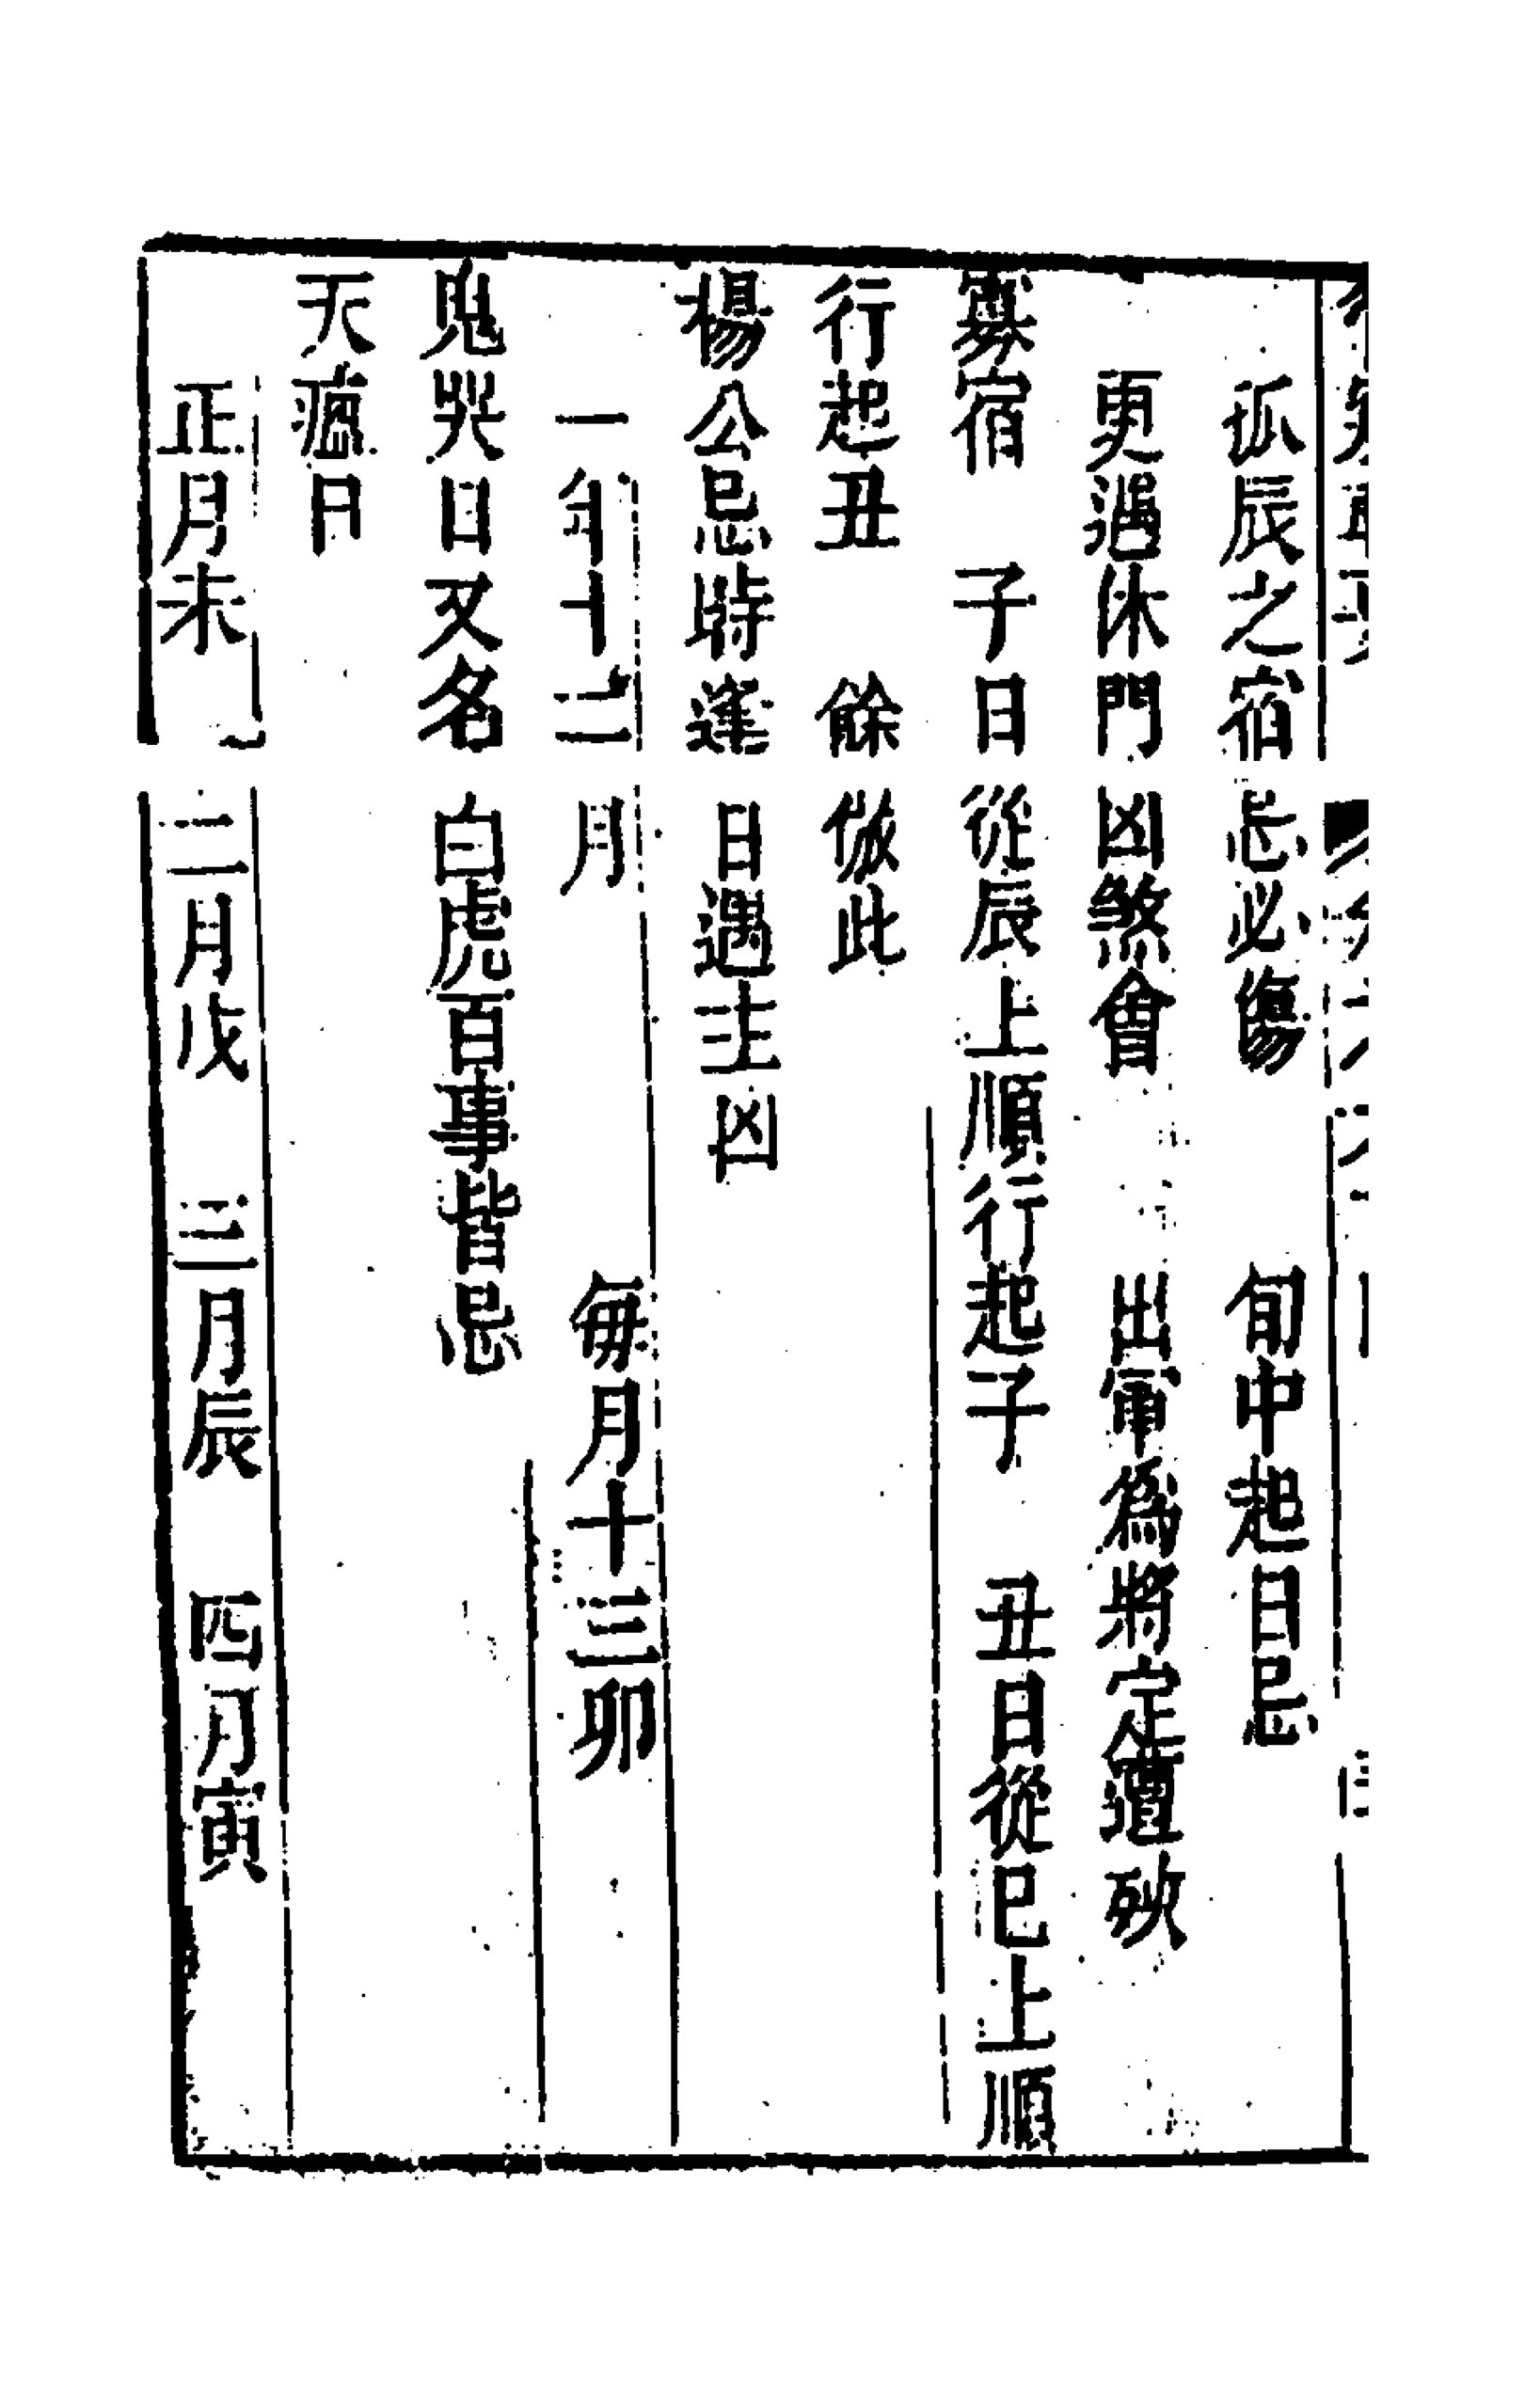 孤辰之宿忌必傷　旬中起日忌
更遇休門凶煞會　出軍爲將定遭殃
寡宿　子日從辰上順行起子　丑日從巳上順
行起丑　餘倣此
楊公忌時逢日遇主凶
一年十二月　每月十三卯
鬼哭日又名白虎百事皆忌
天瘟日
正月未　二月戊　三月辰　四月寅